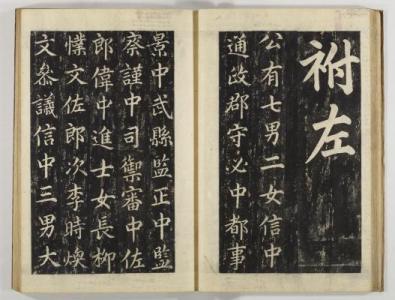 祔左
公有七男二女信中
通政郡守必中都事
景中武縣監正中監
察謹中司禦審中佐
郎偉中進士女長柳
懞文佐郎次李時煥
文參議信中三男大